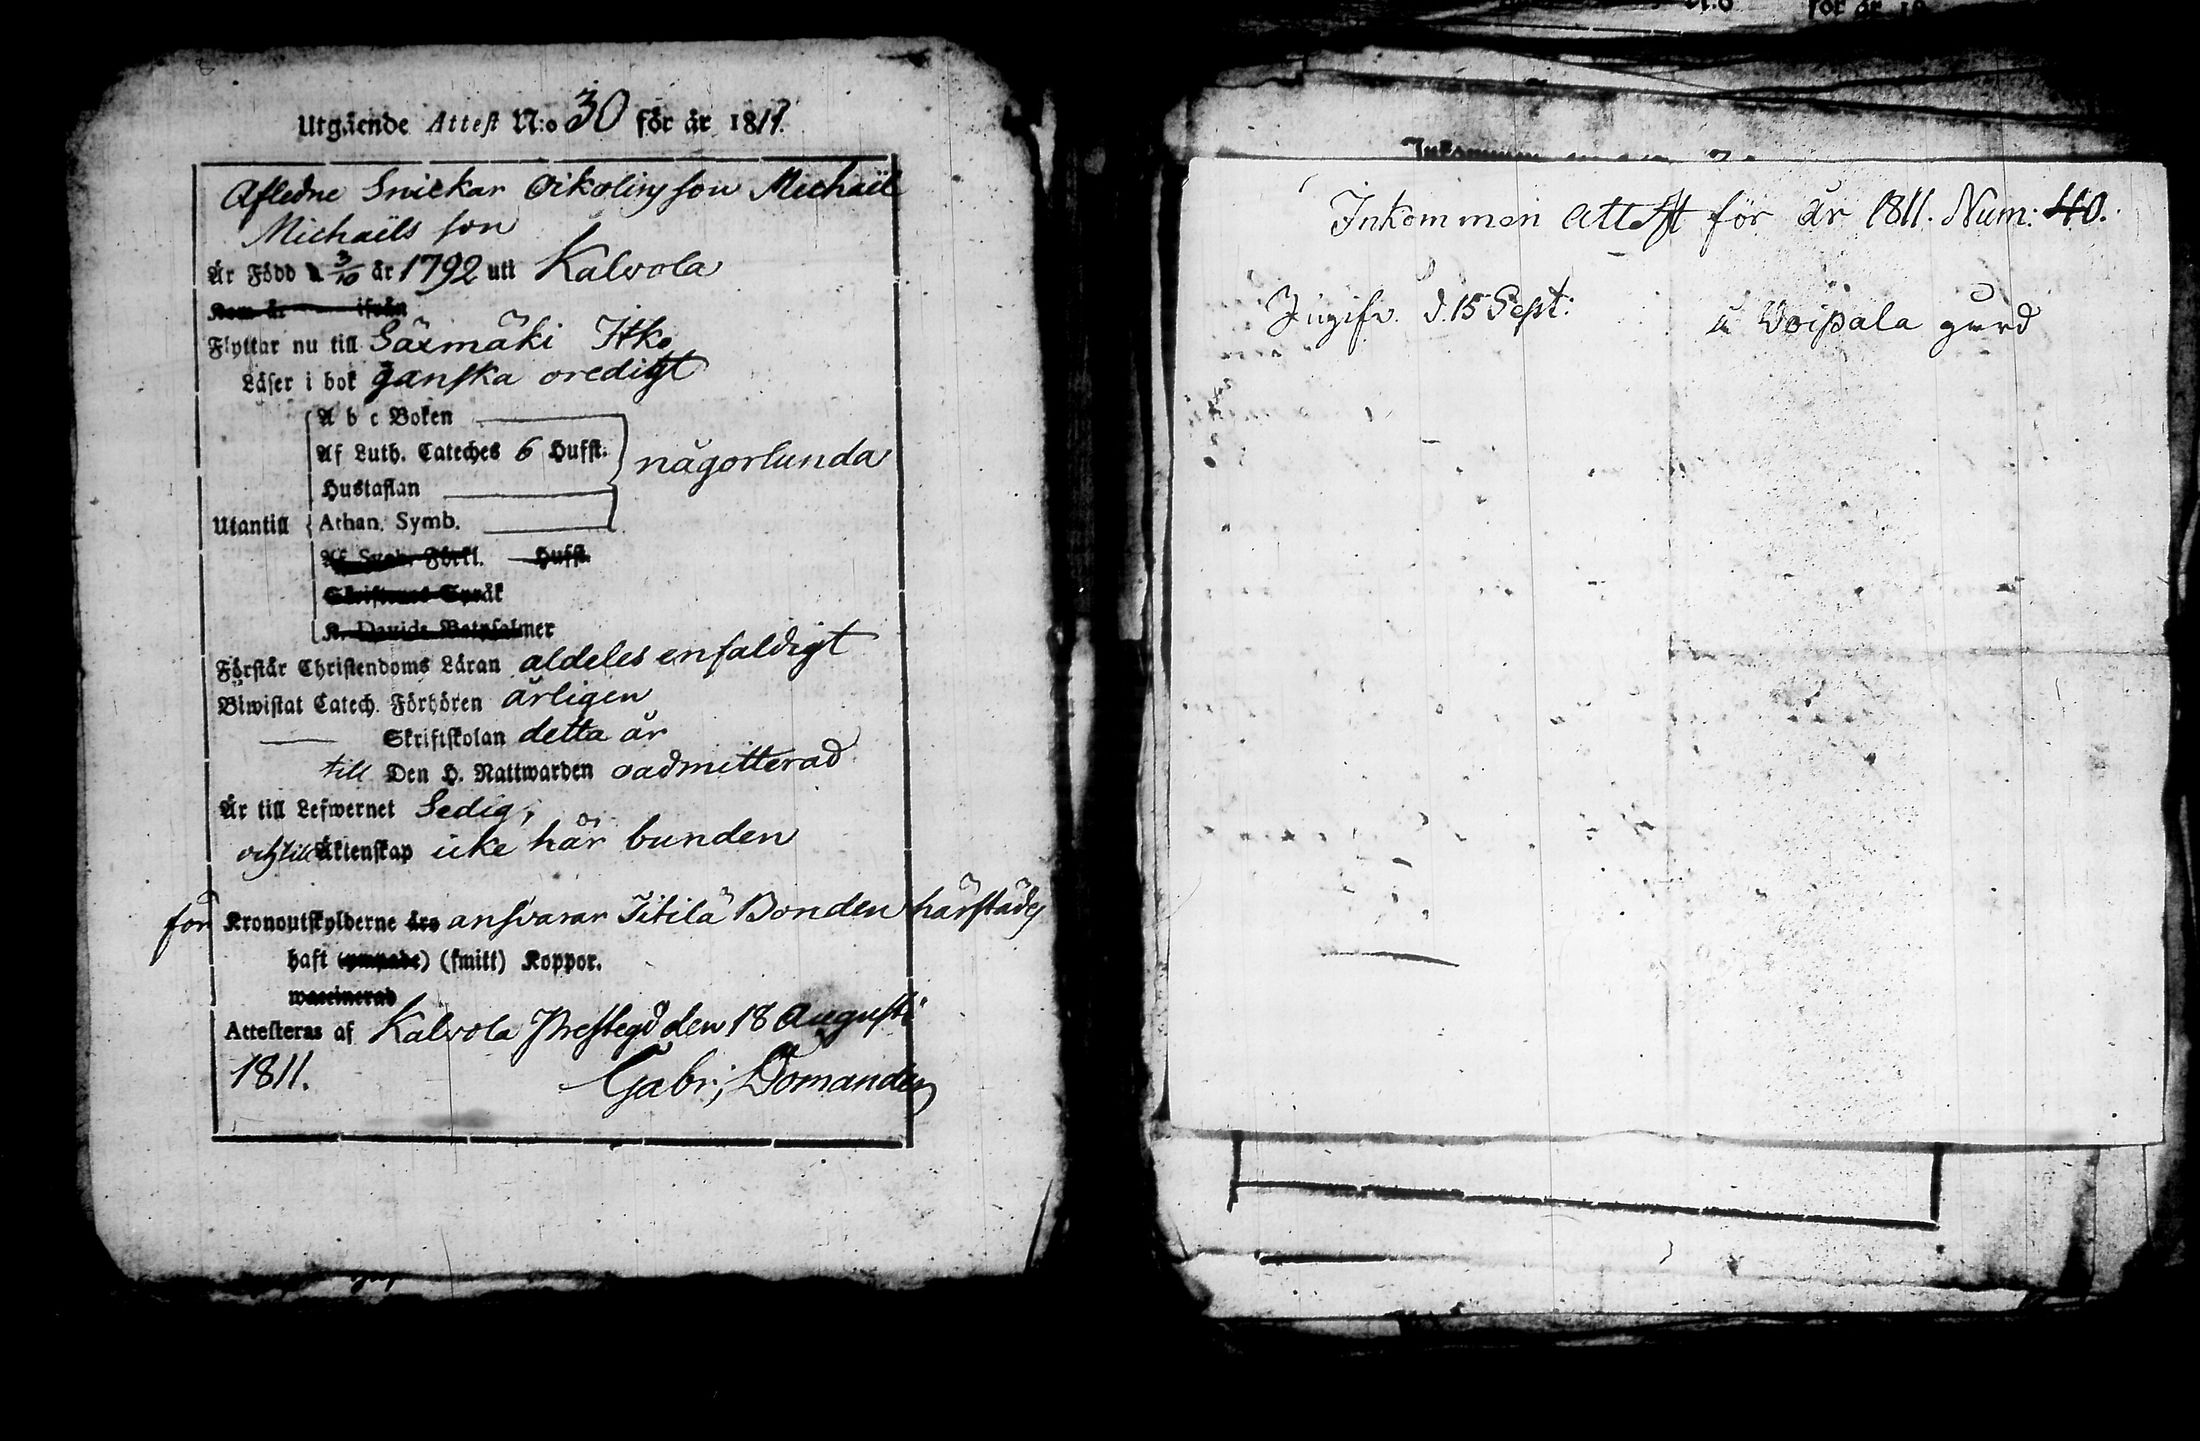 Utgående Attest N:o 30 för år 1811.
Afledne Snickar Oikolins son Michaël
Michaëls son
Är Född d. 3/10 år 1792 uti Kalvola
Kom år ifrån
Flyttar nu till Säxmäki
Läser i bok ganska oredigt
A b c Boken
Af Luth. Cateches 6 Hufst.
någorlunda
Hustaflan
Utantill
Athan. Symb.
Af Svebi Förkl. Hufst.
Skriftenes Språk
K. Davids Botpsalmer
Förstår Christendoms Läran aldeles enfaldigt
Biwistat Catech. Förhören årligen
Skriftskolan detta år
till Den H. Nattwarden oadmitterad
Är till Lefwernet Sedig,
och till Äktenskap icke här bunden
för Kronoutskylderne äro ansvarar Titilä Bonden härstädes
haft (ympade) (smitt) Koppor.
waccinerad
Attesteras af Kalvola Prestegd den 18 Augusti
1811.
Gabr; Domander
för år 18
Inkommen
Inkommen Attest för år 1811. Num: 40.
Ingifv. d. 15 Sept:
å Voipala gård